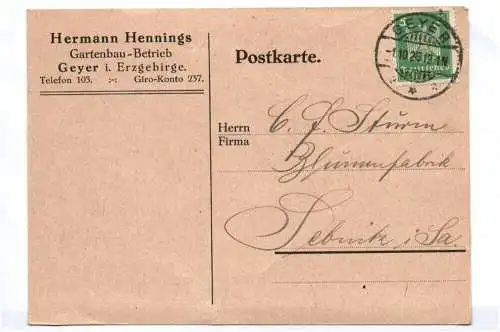 Hermann Hennings
Gartenbau-Betrieb
Geyer i. Erzgebirge.
Telefon 103. Giro-Konto 237.
Postkarte.
GEYER
Herrn
Firma
Sturm
Blumenfabrik
Sebnitz i/Sa.